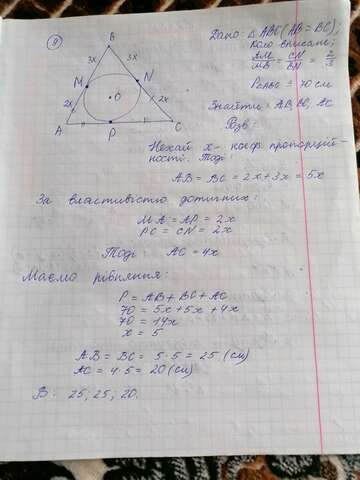 9
B
3x 3x
M N
2x O 2x
A P C
Дано: △ABC (AB = BC);
коло вписане;
AM/MB = CN/BN = 2/3
P△ABC = 70 см
Знайти: AB, BC, AC
Розв:
Нехай x - коеф. пропорцій-
ності. Тоді
AB = BC = 2x + 3x = 5x
За властивістю дотичних:
MA = AP = 2x
PC = CN = 2x
Тоді AC = 4x
Маємо рівняння:
P = AB + BC + AC
70 = 5x + 5x + 4x
70 = 14x
x = 5
AB = BC = 5·5 = 25 (см)
AC = 4·5 = 20 (см)
В: 25; 25; 20.